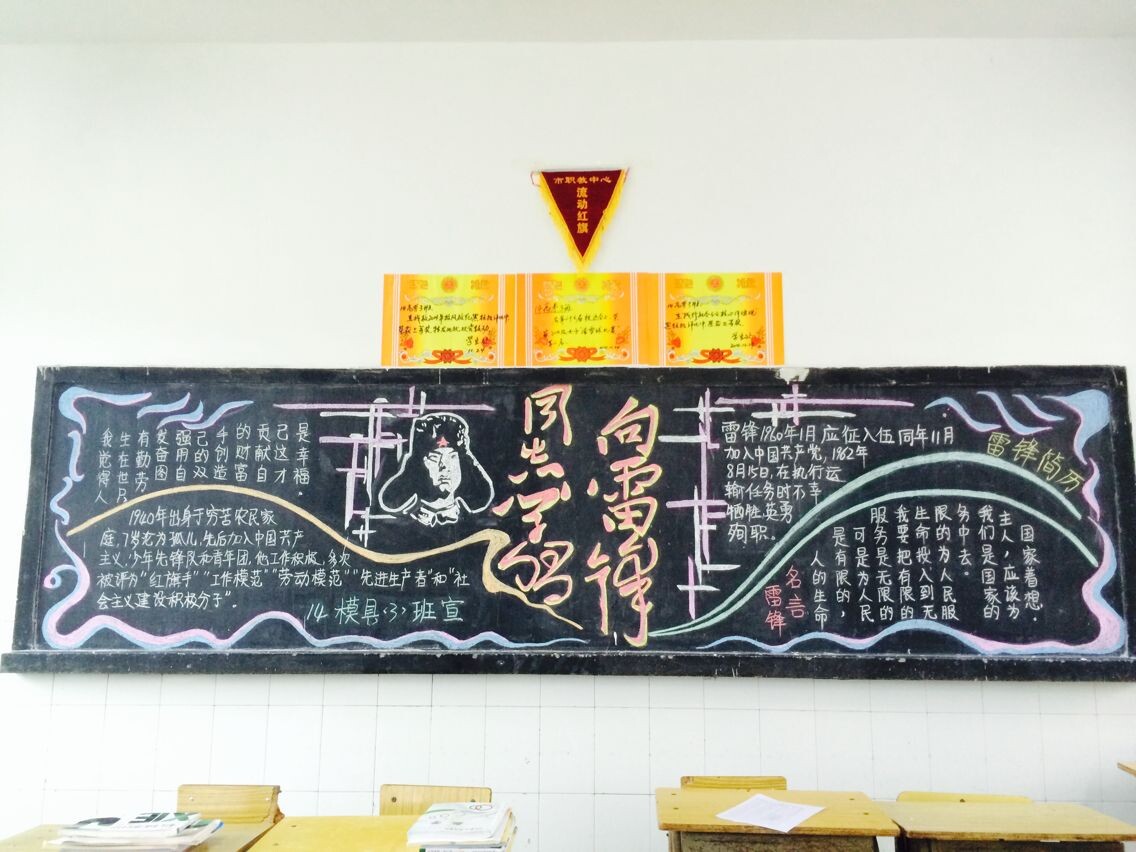 市职教中心
流动红旗
向雷锋
同志学习
我觉得人
生在世只
有勤劳
发奋图
强用自
己的双
手创造
的财富
贡献自
己这才
是幸福.
1940年出身于穷苦农民家
庭,7岁沦为孤儿,先后加入中国共产
主义,少年先锋队和青年团,他工作积极,多次
被评为"红旗手""工作模范""劳动模范""先进生产者"和"社
会主义建设积极分子".
14模具(3)班宣
雷锋简历
雷锋1960年1月应征入伍同年11月
加入中国共产党,1962年
8月15日,在执行运
输任务时不幸
牺牲,英勇
殉职.
雷锋
名言
人的生命
是有限的,
可是为人民
服务是无限的
我要把有限的
生命投入到无
限的为人民服
务中去.
我们是国家的
主人,应该为
国家着想.